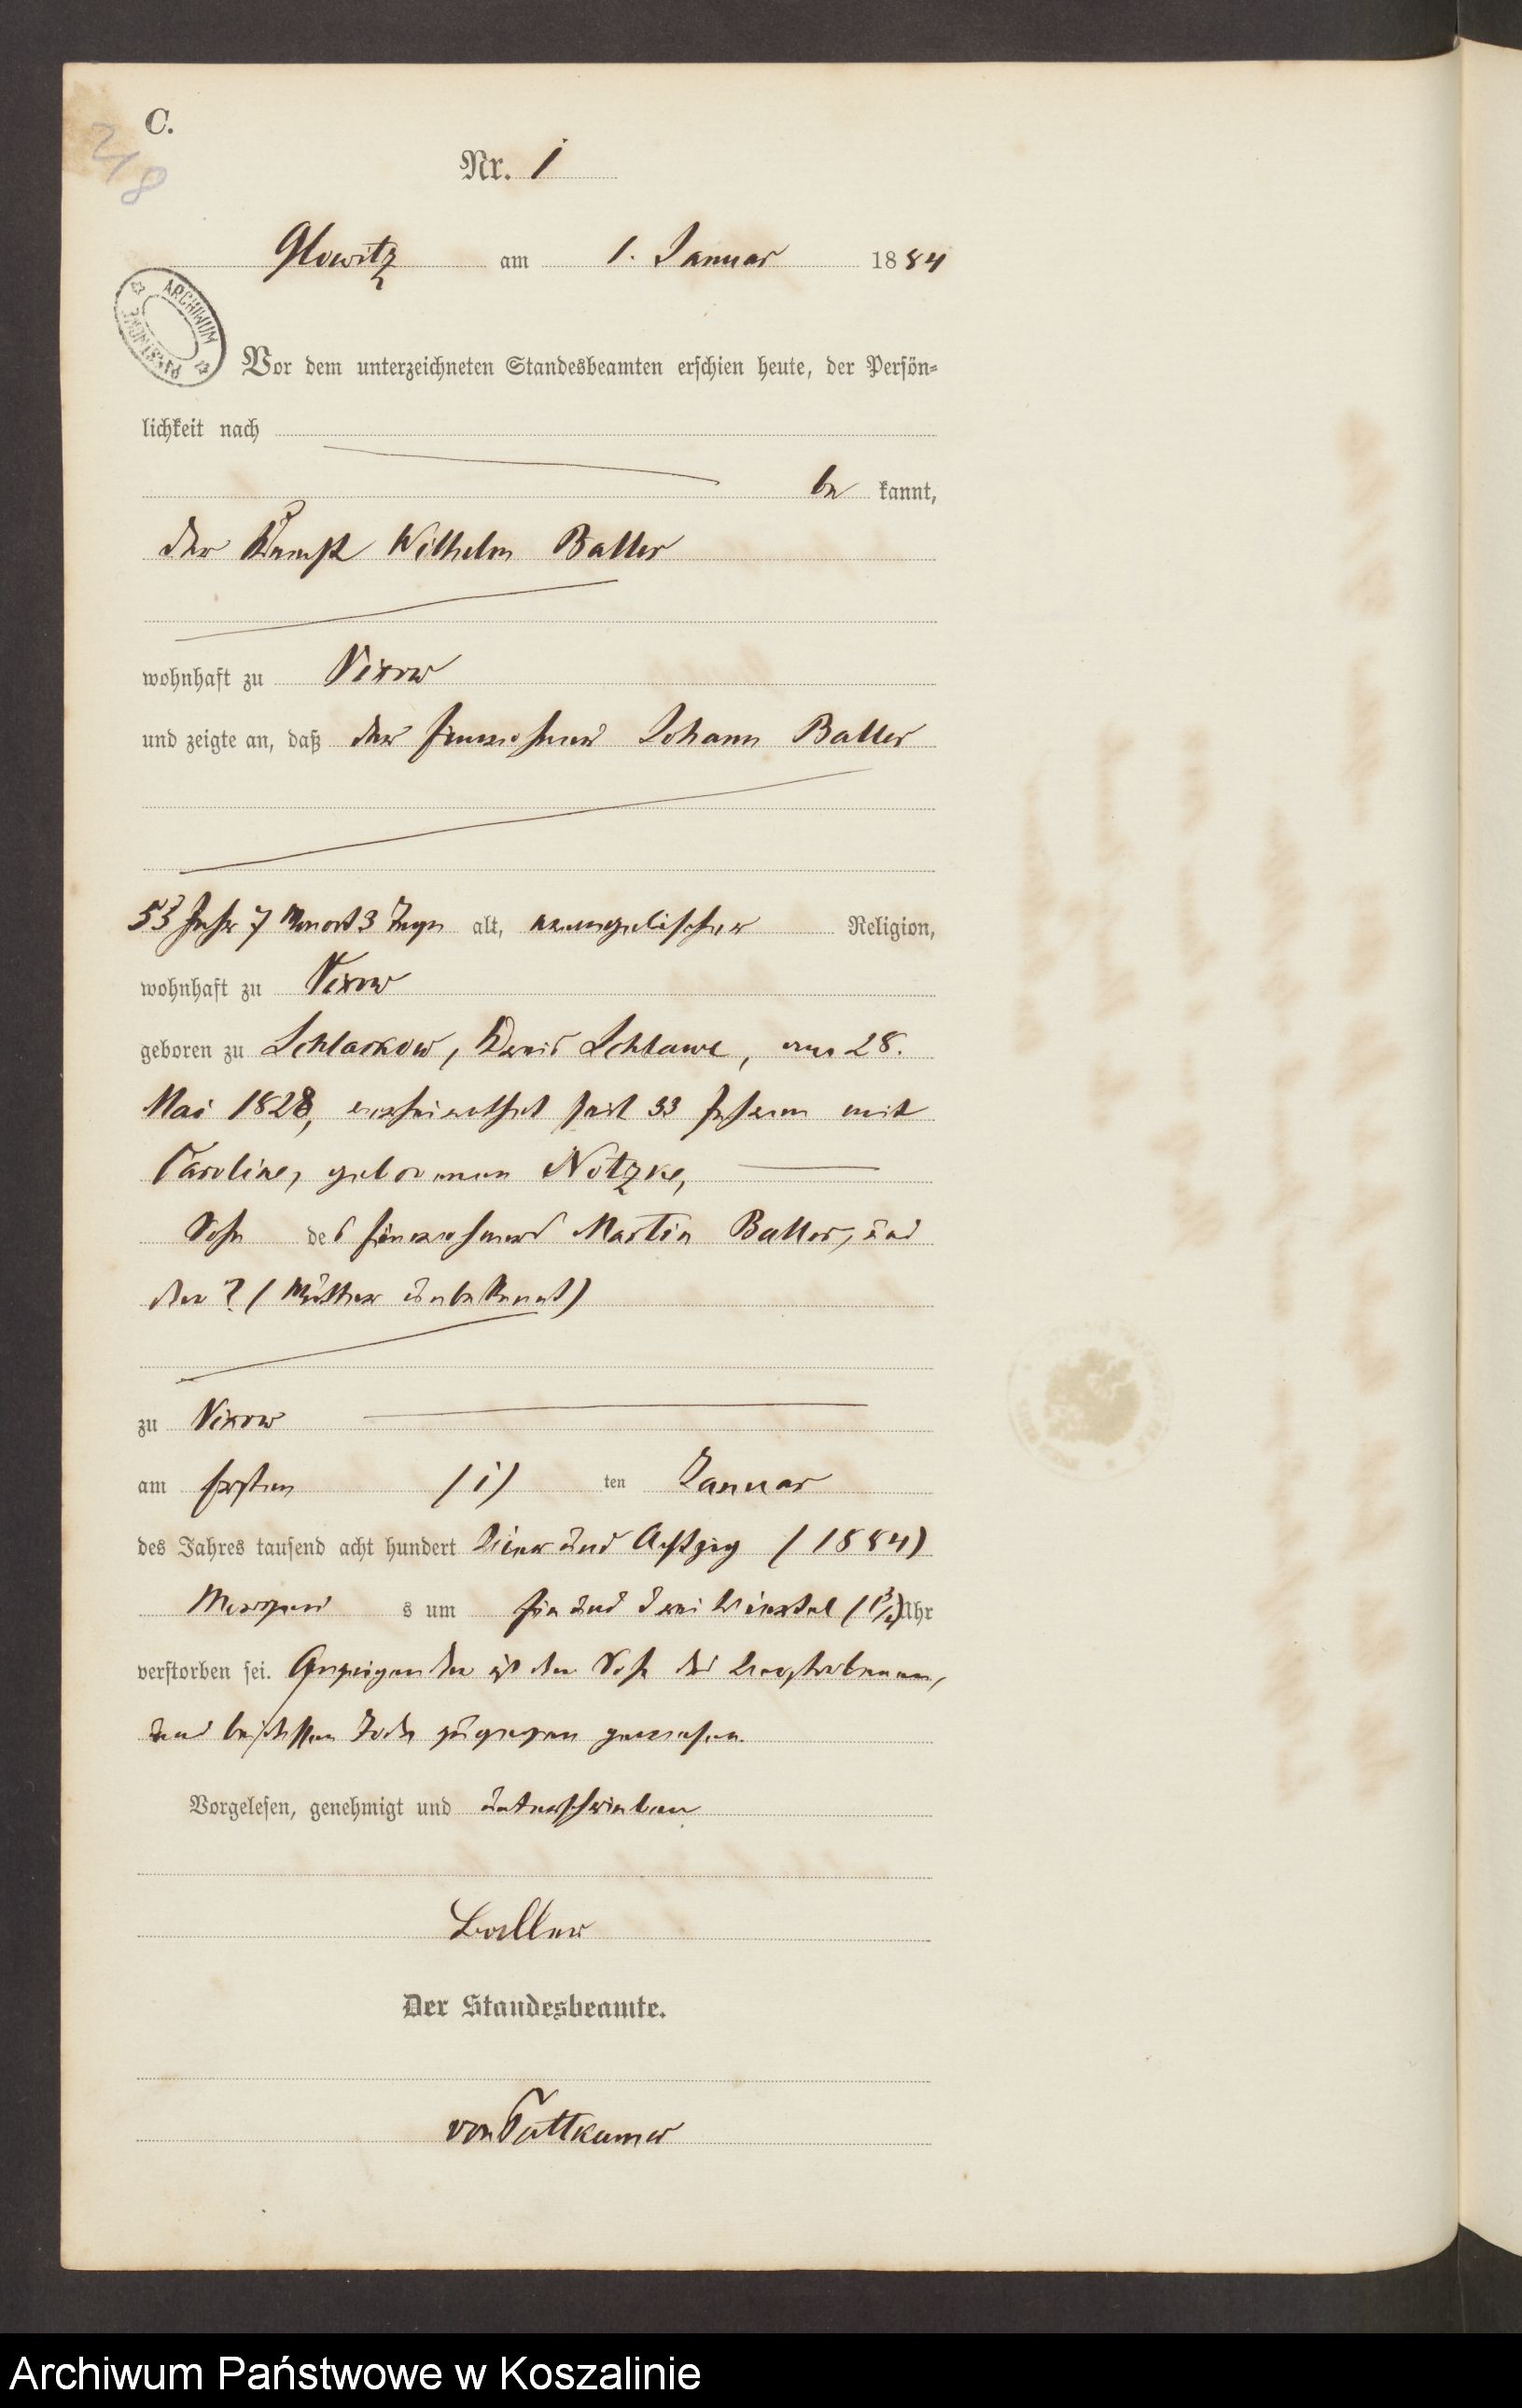 C.
218
Nr. 1
Glowitz am 1. Januar 1884
ARCHIWUM PAŃSTWOWE
Vor dem unterzeichneten Standesbeamten erschien heute, der Persön-
lichkeit nach
be kannt,
der Knecht Wilhelm Baller
wohnhaft zu Vixow
und zeigte an, daß der Einwohner Johann Baller
53 Jahr 7 Monat 3 Tage alt, evangelischer Religion,
wohnhaft zu Vixow
geboren zu Schlackow, Kreis Schlawe, am 28.
Mai 1828, verheirathet seit 33 Jahren mit
Caroline, geborenen Notzke,
Sohn des Einwohners Martin Baller, und
der ? (Mutter unbekannt)
zu Vixow
am Ersten (1) ten Januar
des Jahres tausend acht hundert Vier und Achtzig (1884)
Morgens um Ein und drei Viertel (1¾) Uhr
verstorben sei. Anzeigender ist der Sohn des Verstorbenen,
und bei dessen Tode zugegen gewesen.
Vorgelesen, genehmigt und unterschrieben
Baller
Der Standesbeamte.
von Puttkamer
Archiwum Państwowe w Koszalinie